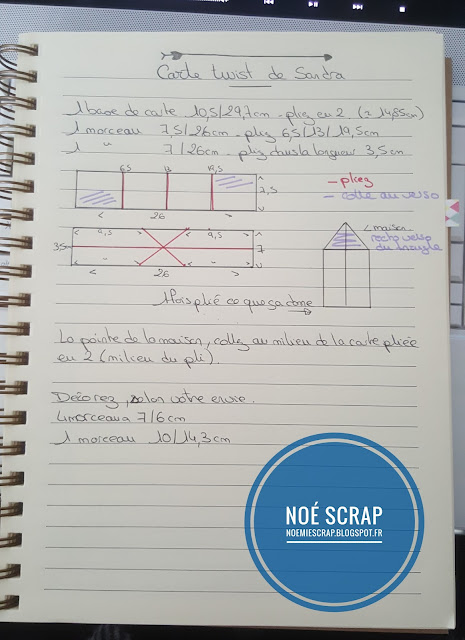 Carte twist de Sandra
1 base de carte 10,5/29,7cm - pliez en 2. (à 14,85cm)
1 morceau 7,5/26cm - pliez 6,5/13/19,5cm
1 " 7/26cm - pliez dans la longueur 3,5cm
6,5 13 19,5
7,5
26
- pliez
- colle au verso
9,5 9,5
3,5 7
26
maison
recto verso
du triangle
1 fois plié ce que ça donne
La pointe de la maison, collez au milieu de la carte pliée
en 2 (milieu du pli).
Décorez, selon votre envie.
4 morceaux 7/6cm
1 morceau 10/14,3cm
NOÉ SCRAP
NOEMIESCRAP.BLOGSPOT.FR